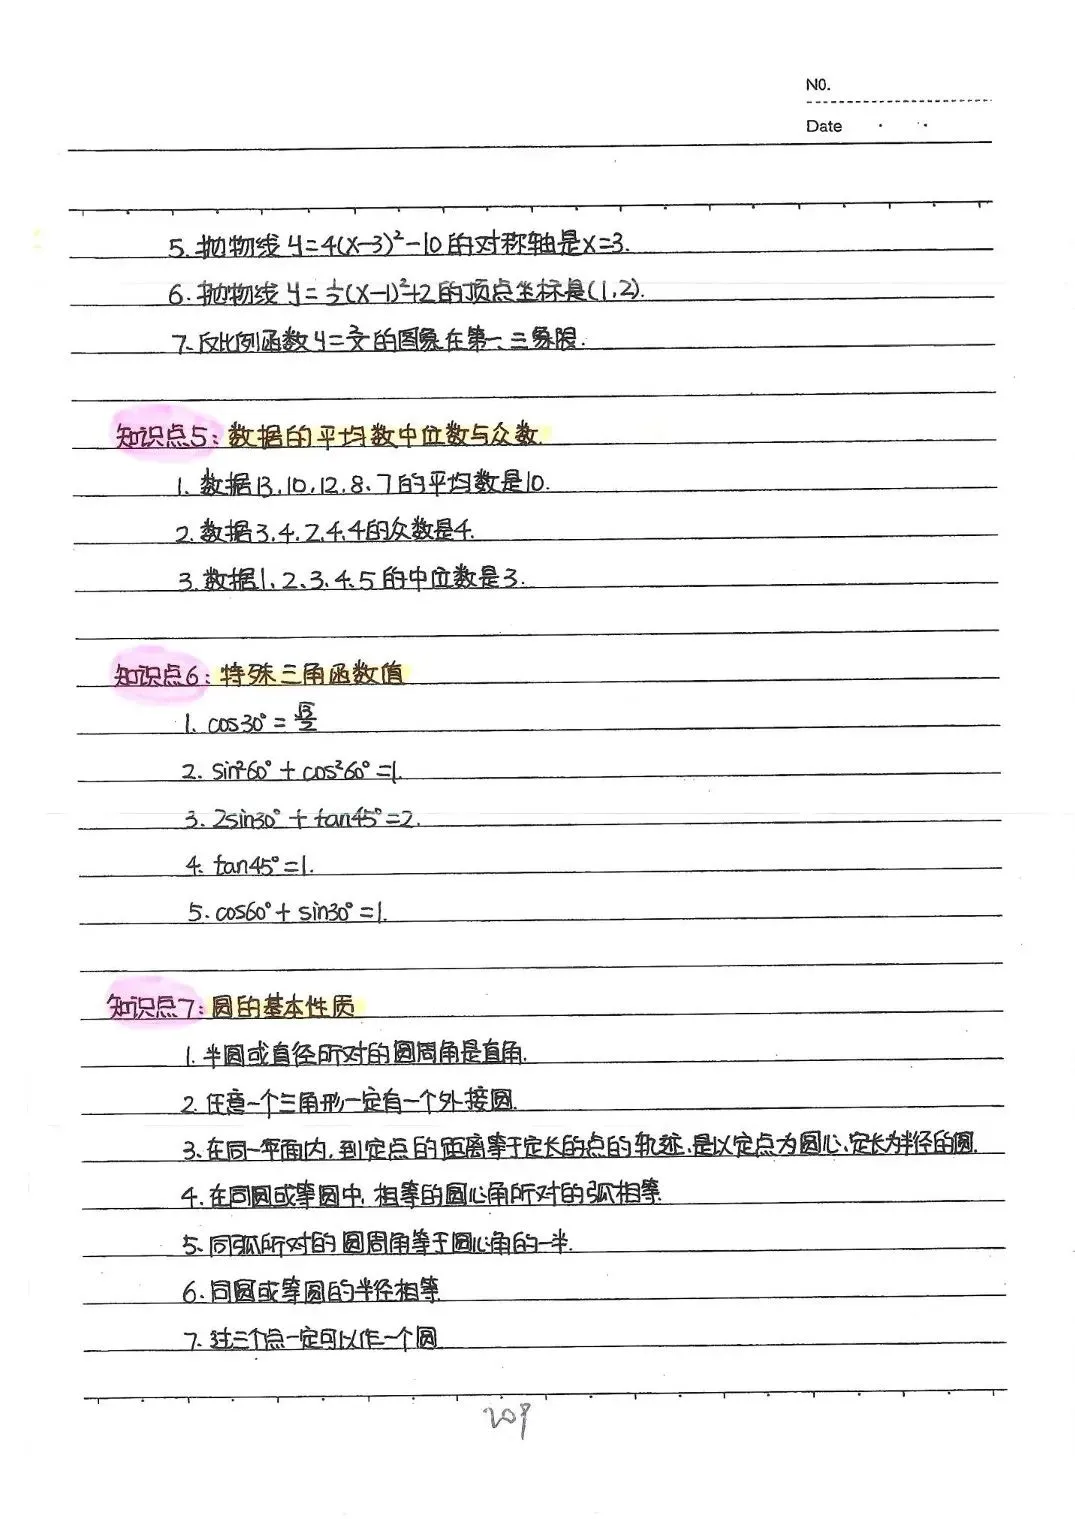 NO.
Date
5.抛物线y=4(x-3)²-10的对称轴是x=3.
6.抛物线y=½(x-1)²+2的顶点坐标是(1,2).
7.反比例函数y=2/x的图象在第一、三象限.
知识点5:数据的平均数中位数与众数.
1.数据13,10,12,8,7的平均数是10.
2.数据3,4,2,4,4的众数是4.
3.数据1、2、3、4、5的中位数是3.
知识点6:特殊三角函数值
1. cos30°=√3/2
2. sin²60°+cos²60°=1.
3. 2sin30°+tan45°=2.
4. tan45°=1.
5. cos60°+sin30°=1.
知识点7:圆的基本性质
1.半圆或直径所对的圆周角是直角.
2.任意一个三角形一定有一个外接圆.
3.在同一平面内,到定点的距离等于定长的点的轨迹,是以定点为圆心,定长为半径的圆.
4.在同圆或等圆中,相等的圆心角所对的弧相等.
5.同弧所对的圆周角等于圆心角的一半.
6.同圆或等圆的半径相等.
7.过三个点一定可以作一个圆
209